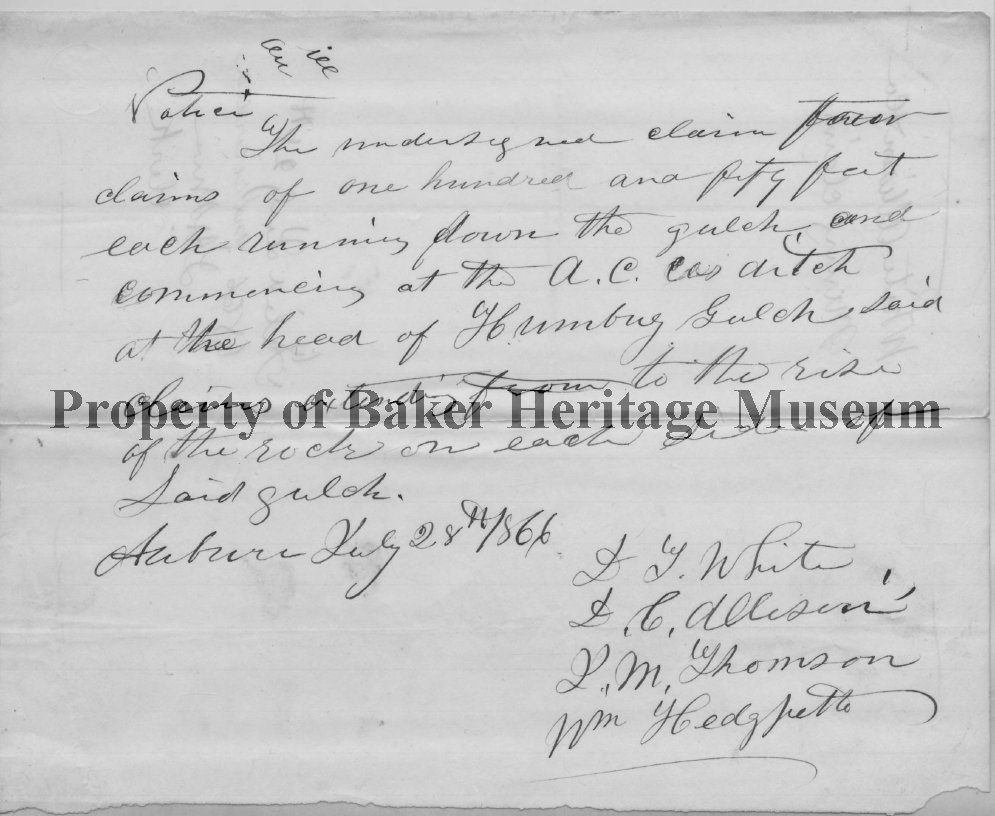 Notice
The undersigned claim four
claims of one hundred and fifty feet
each running down the gulch, and
commencing at the A. C. Cos ditch
at the head of Humbug Gulch said
claims extending from to the rise
Property of Baker Heritage Museum
of the rock on each side of
Said gulch.
Auburn July 28th/866
D. T. White
D. C. Allison
J. M. Thomson
Wm Hedgpeth